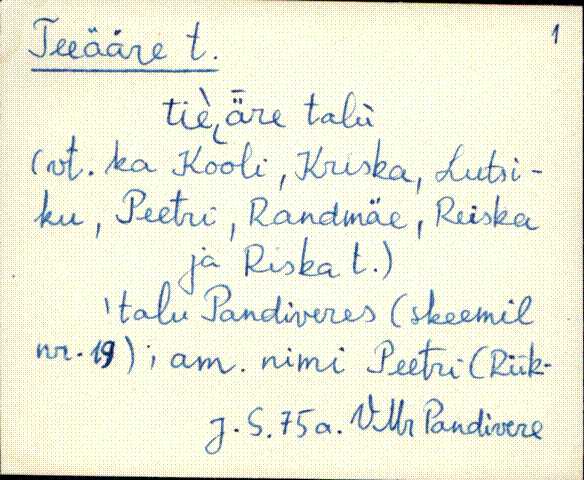 1
Teeääre t.
tiè̮ǟre talù
(vt. ka Kooli, Kriska, Lutsi-
ku, Peetri, Randmäe, Reiska
ja Riska t.)
'talu Pandiveres (skeemil
nr. 19); am. nimi Peetri (Riik-
J. S. 75a. VMr Pandivere